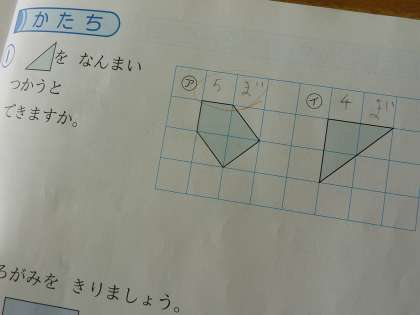 かたち
① を なんまい
つかうと
できますか。
㋐ 5 まい
㋑ 4 まい
ろがみを きりましょう。